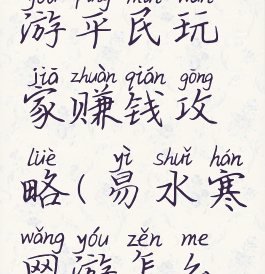 yóu píng mín wán
游平民玩
jiā zhuàn qián gōng
家赚钱攻
lüè yì shuǐ hán
略(易水寒
wǎng yóu zěn me
网游怎么